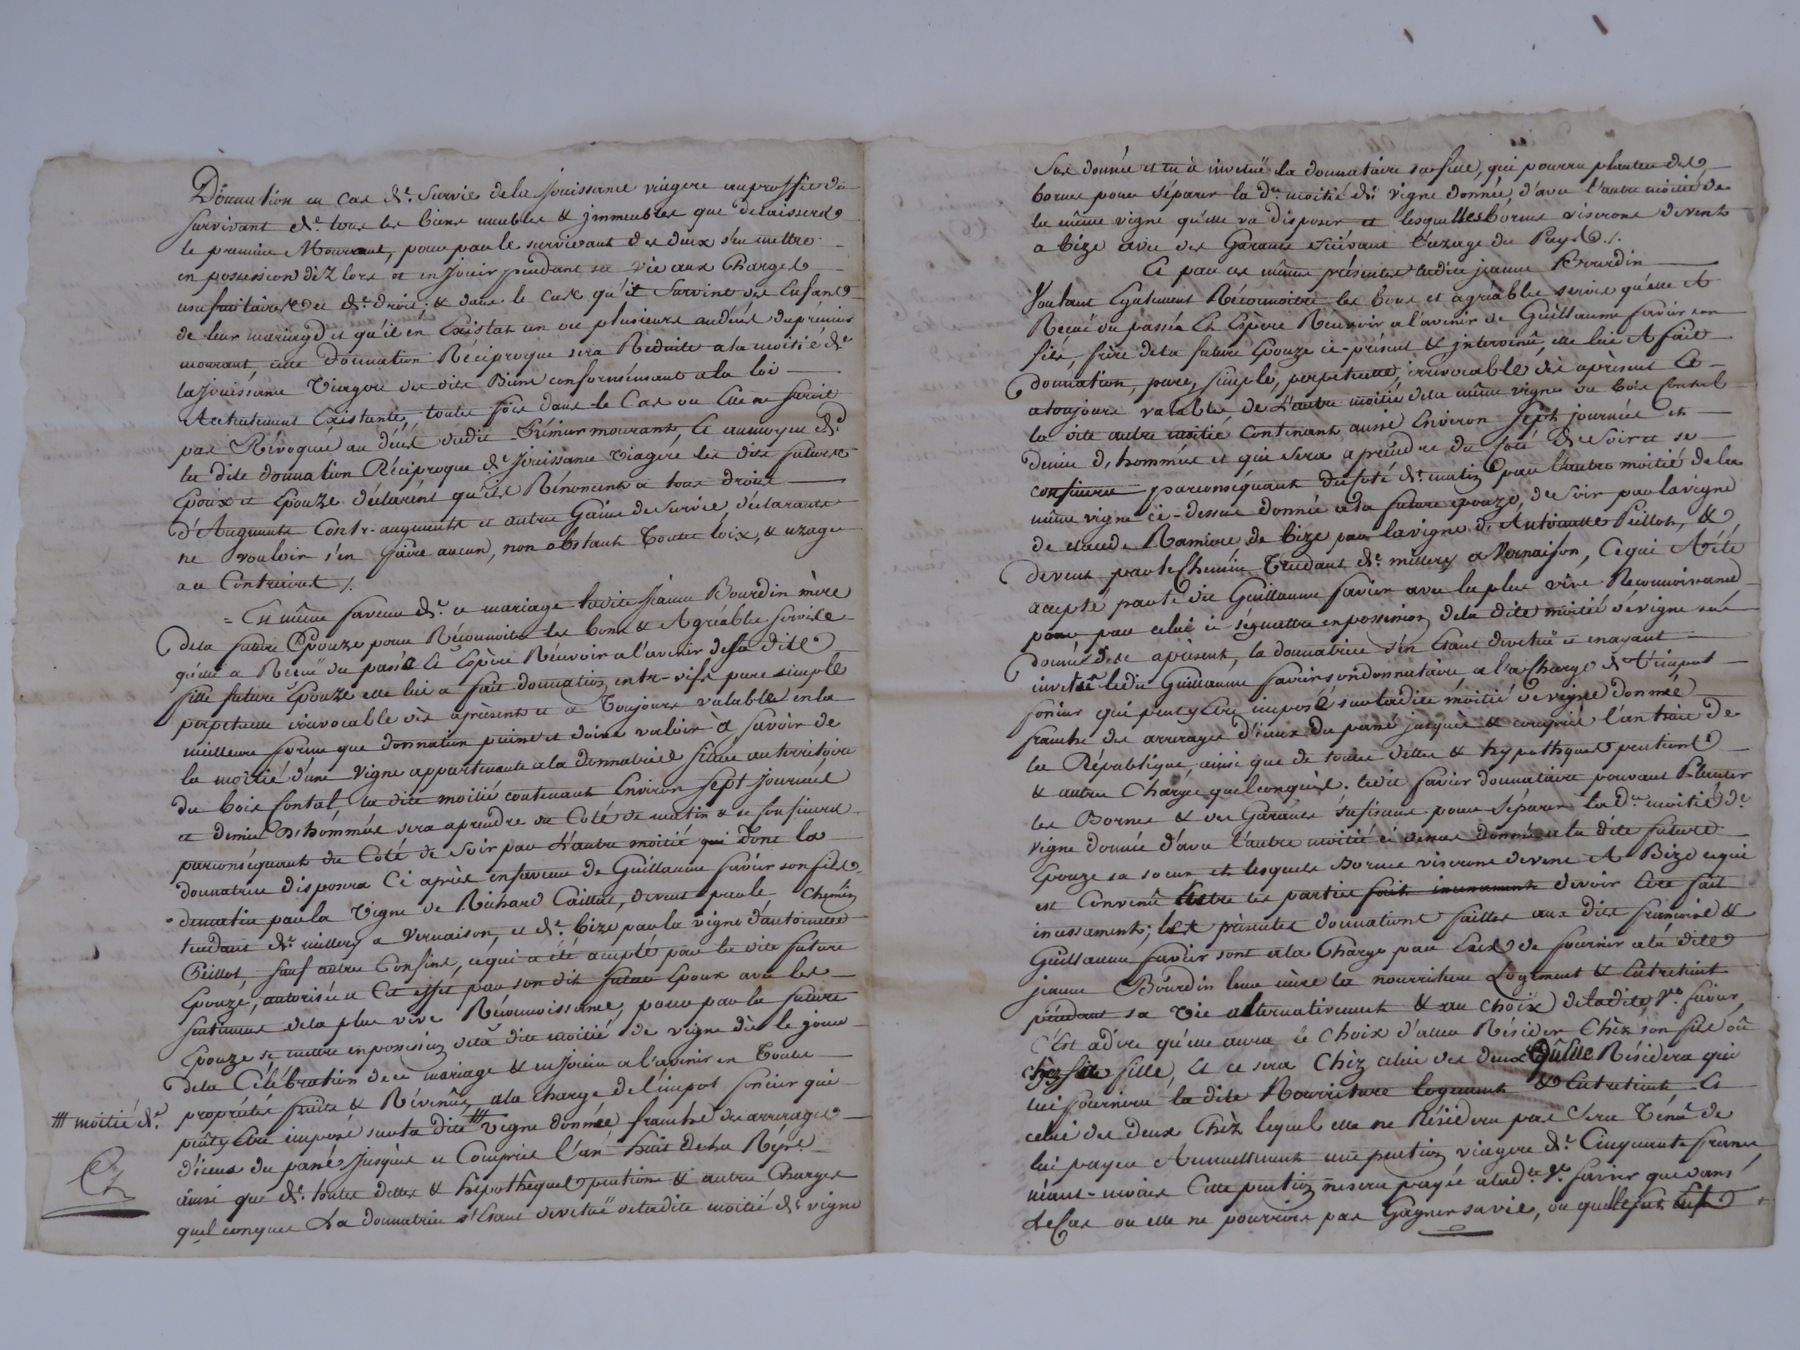 Donnation en cas de Survie de la Jouissance viagere au proffit du
survivant de tous les biens meubles & jmmeubles que delaissera
le premier Mourrant, pour par le survivant des deux s'en mettre
en possession dèz lors et en Jouir pendant sa vie aux Charges
usufruitaires de droit. & dans le cas qu'il survint des Enfans
de leur mariage et qu'il en Existat un ou plusieurs au décès du premier
mourant, cette donnation Réciproque sera Réduite a la moitié de
la Jouissance Viagere des dits Biens conformément a la loi
Actuelement Existante, toutes fois dans le Cas ou Elle ne seroit
pas Révoquée au décès dudit Premier mourant, Et au moyen de
la dite donnation Réciproque de Jouissance Viagere les dits futurs
Epoux et Epouze déclarent qu'ils Rénoncent a tous droits
d'Augments Contr-augments et autres Gains de Survie, déclarants
ne vouloir s'en faire aucun, non obstant Toutes loix, & uzages
a ce Contraires /.
= En même faveur de ce mariage ladite Jeanne Bourdin mère
de la future Epouze pour Réconnoitre les bons & Agréables services
qu'elle a Reçu du passé Et Espère Réçevoir a l'avenir de sa dite
fille future Epouze elle lui a fait donnation entr-vifs pure simple
perpetuelle irrévocable dès aprèsent et a Toujours valable en la
meilleure forme que donnation puisse et doive valoir à savoir de
la moitié d'une Vigne appartenante a la donnatrice située au territoire
du bois Contal, la dite moitié contenant Environ sept Journées
et demies d'hommées sera aprendre du Coté de matin & se confinera
parconséquant du Coté de Soir par l'autre moitié qui dont la
donnatrice disposera Ci après en faveur de Guillaume favier son fils,
de matin par la Vigne de Richard Caillot, devent par le Chemin
tendant de millery a Vernaison, et de bize par la vigne d'antoinette
Peillot, sauf autres Confins, ce qui a été acepté par la dite future
Epouze, autorisée a Cet effet par son dit futur Epoux avec les
sentimens de la plus vive Réconnoissance, pour par la future
Epouze se mettre en possession de la dite moitié de vigne dès le jour
de la Célébration de ce mariage & en Jouir a l'avenir en Toutes
propriétés fruits & Révénûs, a la charge de l'impot foncier qui
peût y Etre imposé sur la dite /// Vigne donnée franche des arrerages
/// moitié de
d'iceux du passé Jusques et Compris l'an huit de la Répe.
ainsi que de toutes dettes & hipothèques pentions & autres Charges
quelconques La donnatrice s'Etant devetuë de ladite moitié de vigne
Sus donnée et en à investuë la donnataire sa fille, qui pourra planter des
bornes pour séparer la de. moitié de vigne donnée, d'avec l'autre moitié de
la même vigne qu'elle va disposer et lesquelles bornes viseront de vent
a bize avec des Garants suivant l'uzage du Pays /.
Et par ces mêmes présentes ladite jeanne Bourdin
Voulant Egalement Réconnoitre les bons et agréables services qu'elle A
Reçuë du passé Et Espère Recevoir a l'avenir de Guillaume favier son
fils, frère de la future Epouze ci-présent & jntervenû, elle lui A fait
donnation, pure, simple, perpetuelle, irrévocable dès aprèsent Et
a toujours valable de l'autre moitié de la même vigne au bois Contal
la dite autre moitié Continant aussi Environ Sept journées et
demie d'hommées et qui sera a prendre du Coté de Soir et se
confinera parconséquant du Coté de matin par l'autre moitié de la
même vigne ci-dessus donnée a la future epouze, de soir par la vigne
de claude Ramiere de bize par la vigne d'Antoinette Peillot, &
de vent par le Chemin Tendant de millery a Vernaison, Ce qui A été
acepté par le dit Guillaume favier avec la plus vive Réconnoissance
pour par celui ci se mettre en possession de la dite moitié de vigne sus
donnée dès a présent, la donnatrice s'en Etant devetuë et en ayant
investû ledit Guillaume favier son donnataire, a la Charge de l'impot
foncier qui peut y Etre imposé sur ladite moitié de vigne donnée
franche des arrerages d'iceux du passé jusques & compris l'an huit de
la République, ainsi que de toutes dettes & hypothèques pentions
& autres Charges quelconques. ledit favier donnataire pouvant Planter
les Bornes & des Garants sufisants pour séparer la de. moitié de
vigne donnée d'avec l'autre moitié ci dessus donnée a la dite future
Epouze sa soeur et lesquels Bornes viseront de vent A Bize ce qui
est Convenû Entre les parties fait incessament devoir être fait
incessament; Les présentes donnations faittes aux dits françoise &
Guillaume favier sont a la Charge par Eux de fournir a la dite
jeanne Bourdin leur mère la nourriture Logement & Entretient
pendant sa Vie alternativement & au choix de ladite ve. favier
C'est adire qu'elle aura le Choix d'aller Résider Chèz son fils où
chez sa fille, Et ce sera Chèz celui des deux Qu'elle Résidera qui
lui fournira la dite Nourriture logement & Entretient. Et
celui des deux Chèz lequel elle ne Résidera pas sera Ténu de
lui payer Annuellement une pention viagere de Cinquante francs
néant-moins Cette pention ne sera payée a lade. ve. favier que dans
le Cas ou elle ne pourroit pas Gagner sa vie, ou qu'elle fut